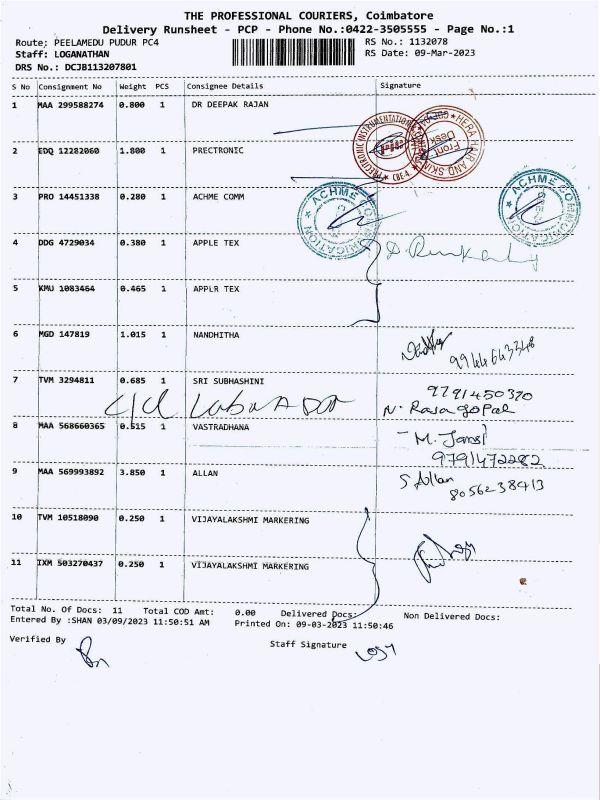 THE PROFESSIONAL COURIERS, Coimbatore
Delivery Runsheet - PCP - Phone No.:0422-3505555 - Page No.:1
Route; PEELAMEDU PUDUR PC4
RS No.: 1132078
Staff: LOGANATHAN
RS Date: 09-Mar-2023
DRS No.: DCJB113207801
S No Consignment No Weight PCS Consignee Details Signature
1 MAA 299588274 0.800 1 DR DEEPAK RAJAN
2 EDQ 12282060 1.800 1 PRECTRONIC
PRECTRONIC INSTRUMENTATION
CBE-4
HERA HAIR AND SKIN
Front Desk
3 PRO 14451338 0.280 1 ACHME COMM
ACHME COMMUNICATION
ACHME COMMUNICATION
4 DDG 4729034 0.380 1 APPLE TEX
5 KMU 1083464 0.465 1 APPLR TEX
6 MGD 147819 1.015 1 NANDHITHA
9944643348
7 TVM 3294811 0.685 1 SRI SUBHASHINI
9791450390
N. Rasagopal
8 MAA 568660365 0.515 1 VASTRADHANA
- M. Jansi
9791472282
9 MAA 569993892 3.850 1 ALLAN
S Allan
8056238413
10 TVM 10518090 0.250 1 VIJAYALAKSHMI MARKERING
11 IXM 503270437 0.250 1 VIJAYALAKSHMI MARKERING
Total No. Of Docs: 11 Total COD Amt: 0.00 Delivered Docs: Non Delivered Docs:
Entered By :SHAN 03/09/2023 11:50:51 AM Printed On: 09-03-2023 11:50:46
Verified By
Staff Signature